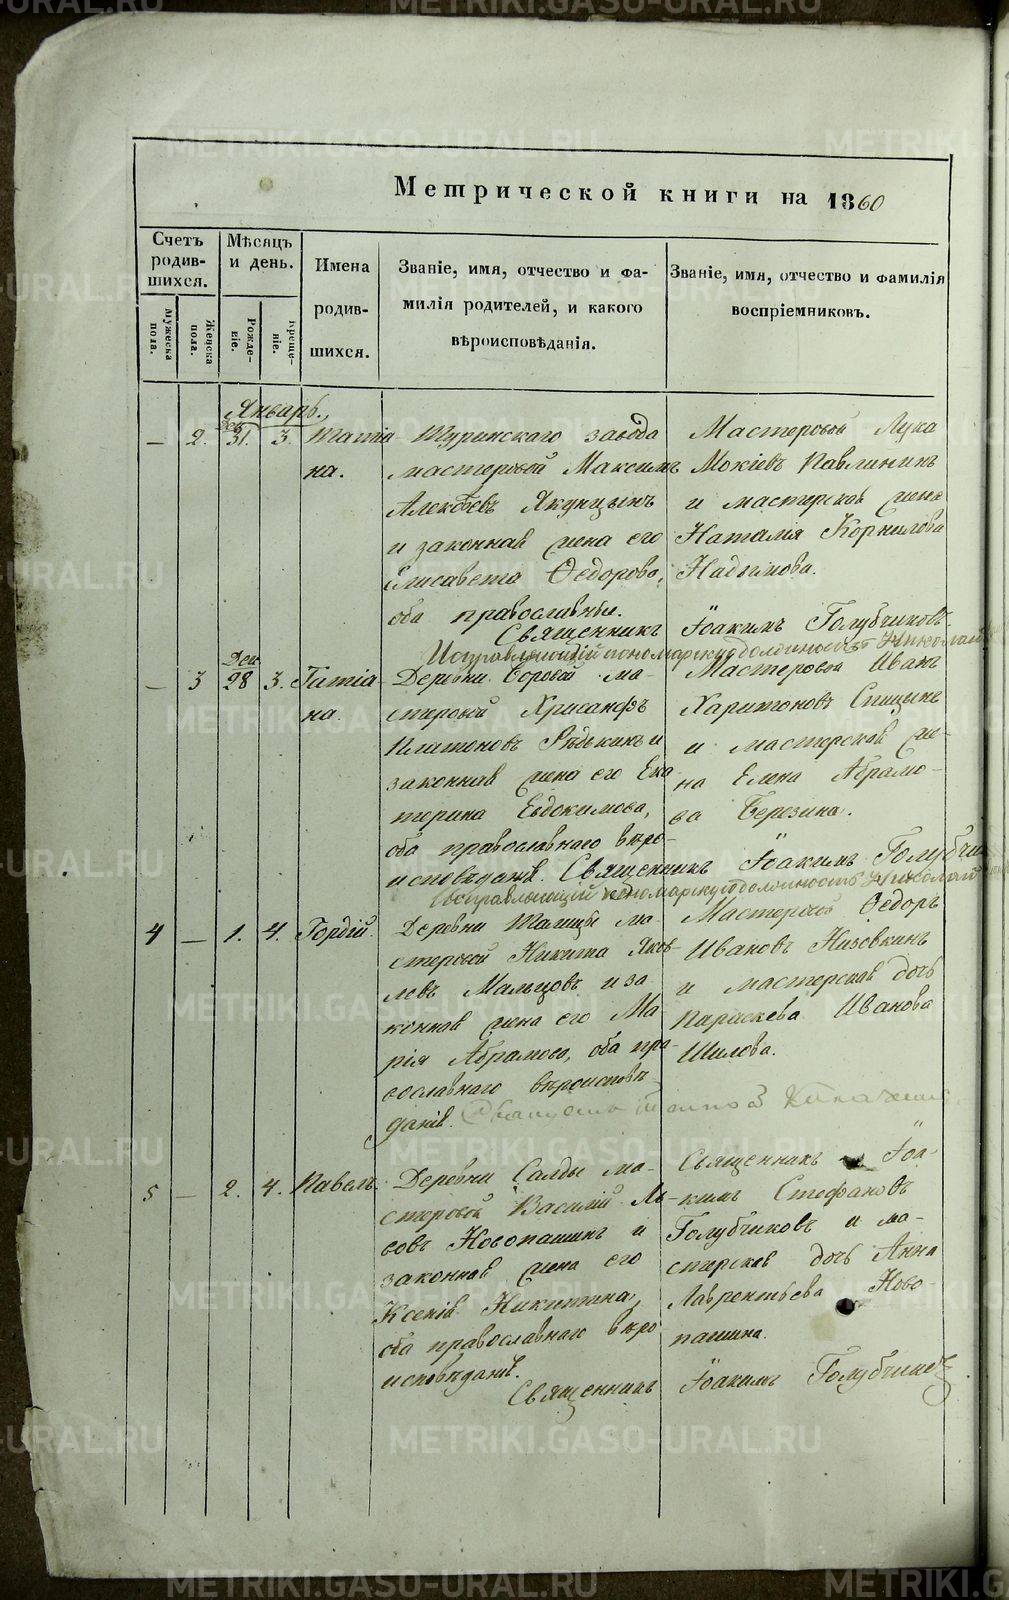 Метрической книги на 1860
Счетъ родив-шихся.
Мужеска пола.
Женска пола.
Мѣсяцъ и день.
Рожде-ніе.
Креще-ніе.
Имена родив-шихся.
Званіе, имя, отчество и фа-
милія родителей, и какого
вѣроисповѣданія.
Званіе, имя, отчество и фамилія
воспріемниковъ.
Январь.
— 2. Дек. 31. 3. Татіа-
на.
Туринскаго завода
мастеровой Максимъ
Алексѣевъ Якунцынъ
и законная жена его
Елисавета Ѳедорова,
оба православныи.
Мастеровой Лука
Мокіевъ Павлининъ
и мастерская жена
Наталія Корнилова
Надымова.
Священникъ Іоакимъ Голубчиковъ.
Исправляющій пономарскую должность Николай
— 3 Дек. 28 3. Татіа-
на.
Деревни Боровой ма-
стеровой Хрисанфъ
Платоновъ Рѣдькинъ и
законная жена его Ека
терина Евдокимова,
оба православнаго вѣро-
исповѣданія.
Мастеровой Иванъ
Харитоновъ Спицынъ
и мастерская же-
на Елена Абрамо-
ва Березина.
Священникъ Іоакимъ Голубчик
Исправляющій пономарскую должность Николай
4 — 1. 4. Гордій.
Деревни ма-
стеровой Никита Яков-
левъ Мальцовъ и за
конная жена его Ма
рія Абрамова, оба пра-
вославнаго вѣроисповѣ-
данія.
Мастеровой Ѳедоръ
Ивановъ Низовкинъ
и мастерская дочь
Параскева Иванова
Шилова.
5 — 2. 4. Павелъ.
Деревни Салды ма-
стеровой Василій Ль-
вовъ Новопашинъ и
законная жена его
Ксенія Никитина,
оба православнаго вѣро
исповѣданія.
Священникъ Іоа-
кимъ Стефановъ
Голубчиковъ и ма-
стерская дочь Анна
Лаврентьева Ново
пашина.
Священникъ Іоакимъ Голубчиковъ
METRIKI.GASO-URAL.RU